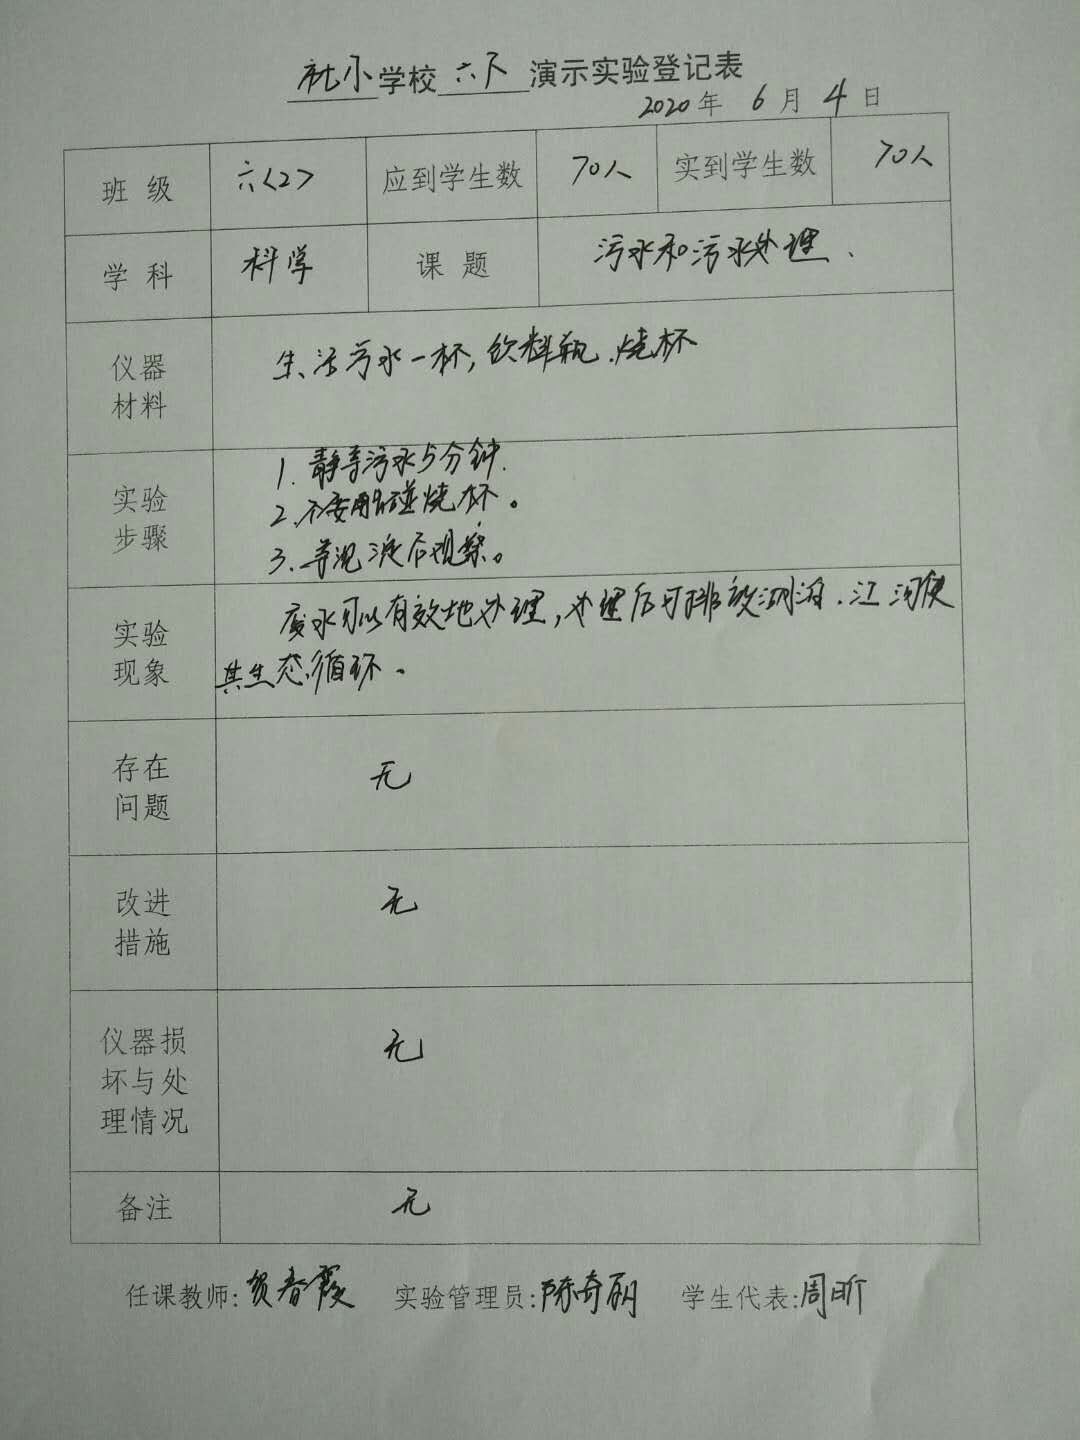 社小学校六下演示实验登记表
2020年 6月 4日
班 级 六<2> 应到学生数 70人 实到学生数 70人
学 科 科学 课 题 污水和污水处理.
仪器
材料
生活污水一杯,饮料瓶.烧杯
实验
步骤
1.静等污水5分钟.
2.不要用碰烧杯。
3.等沉淀后观察。
实验
现象
废水可以有效地处理,处理后可排放湖泊.江河使
其生态循环。
存在
问题
无
改进
措施
无
仪器损
坏与处
理情况
无
备注 无
任课教师:贺春霞 实验管理员:陈奇丽 学生代表:周昕